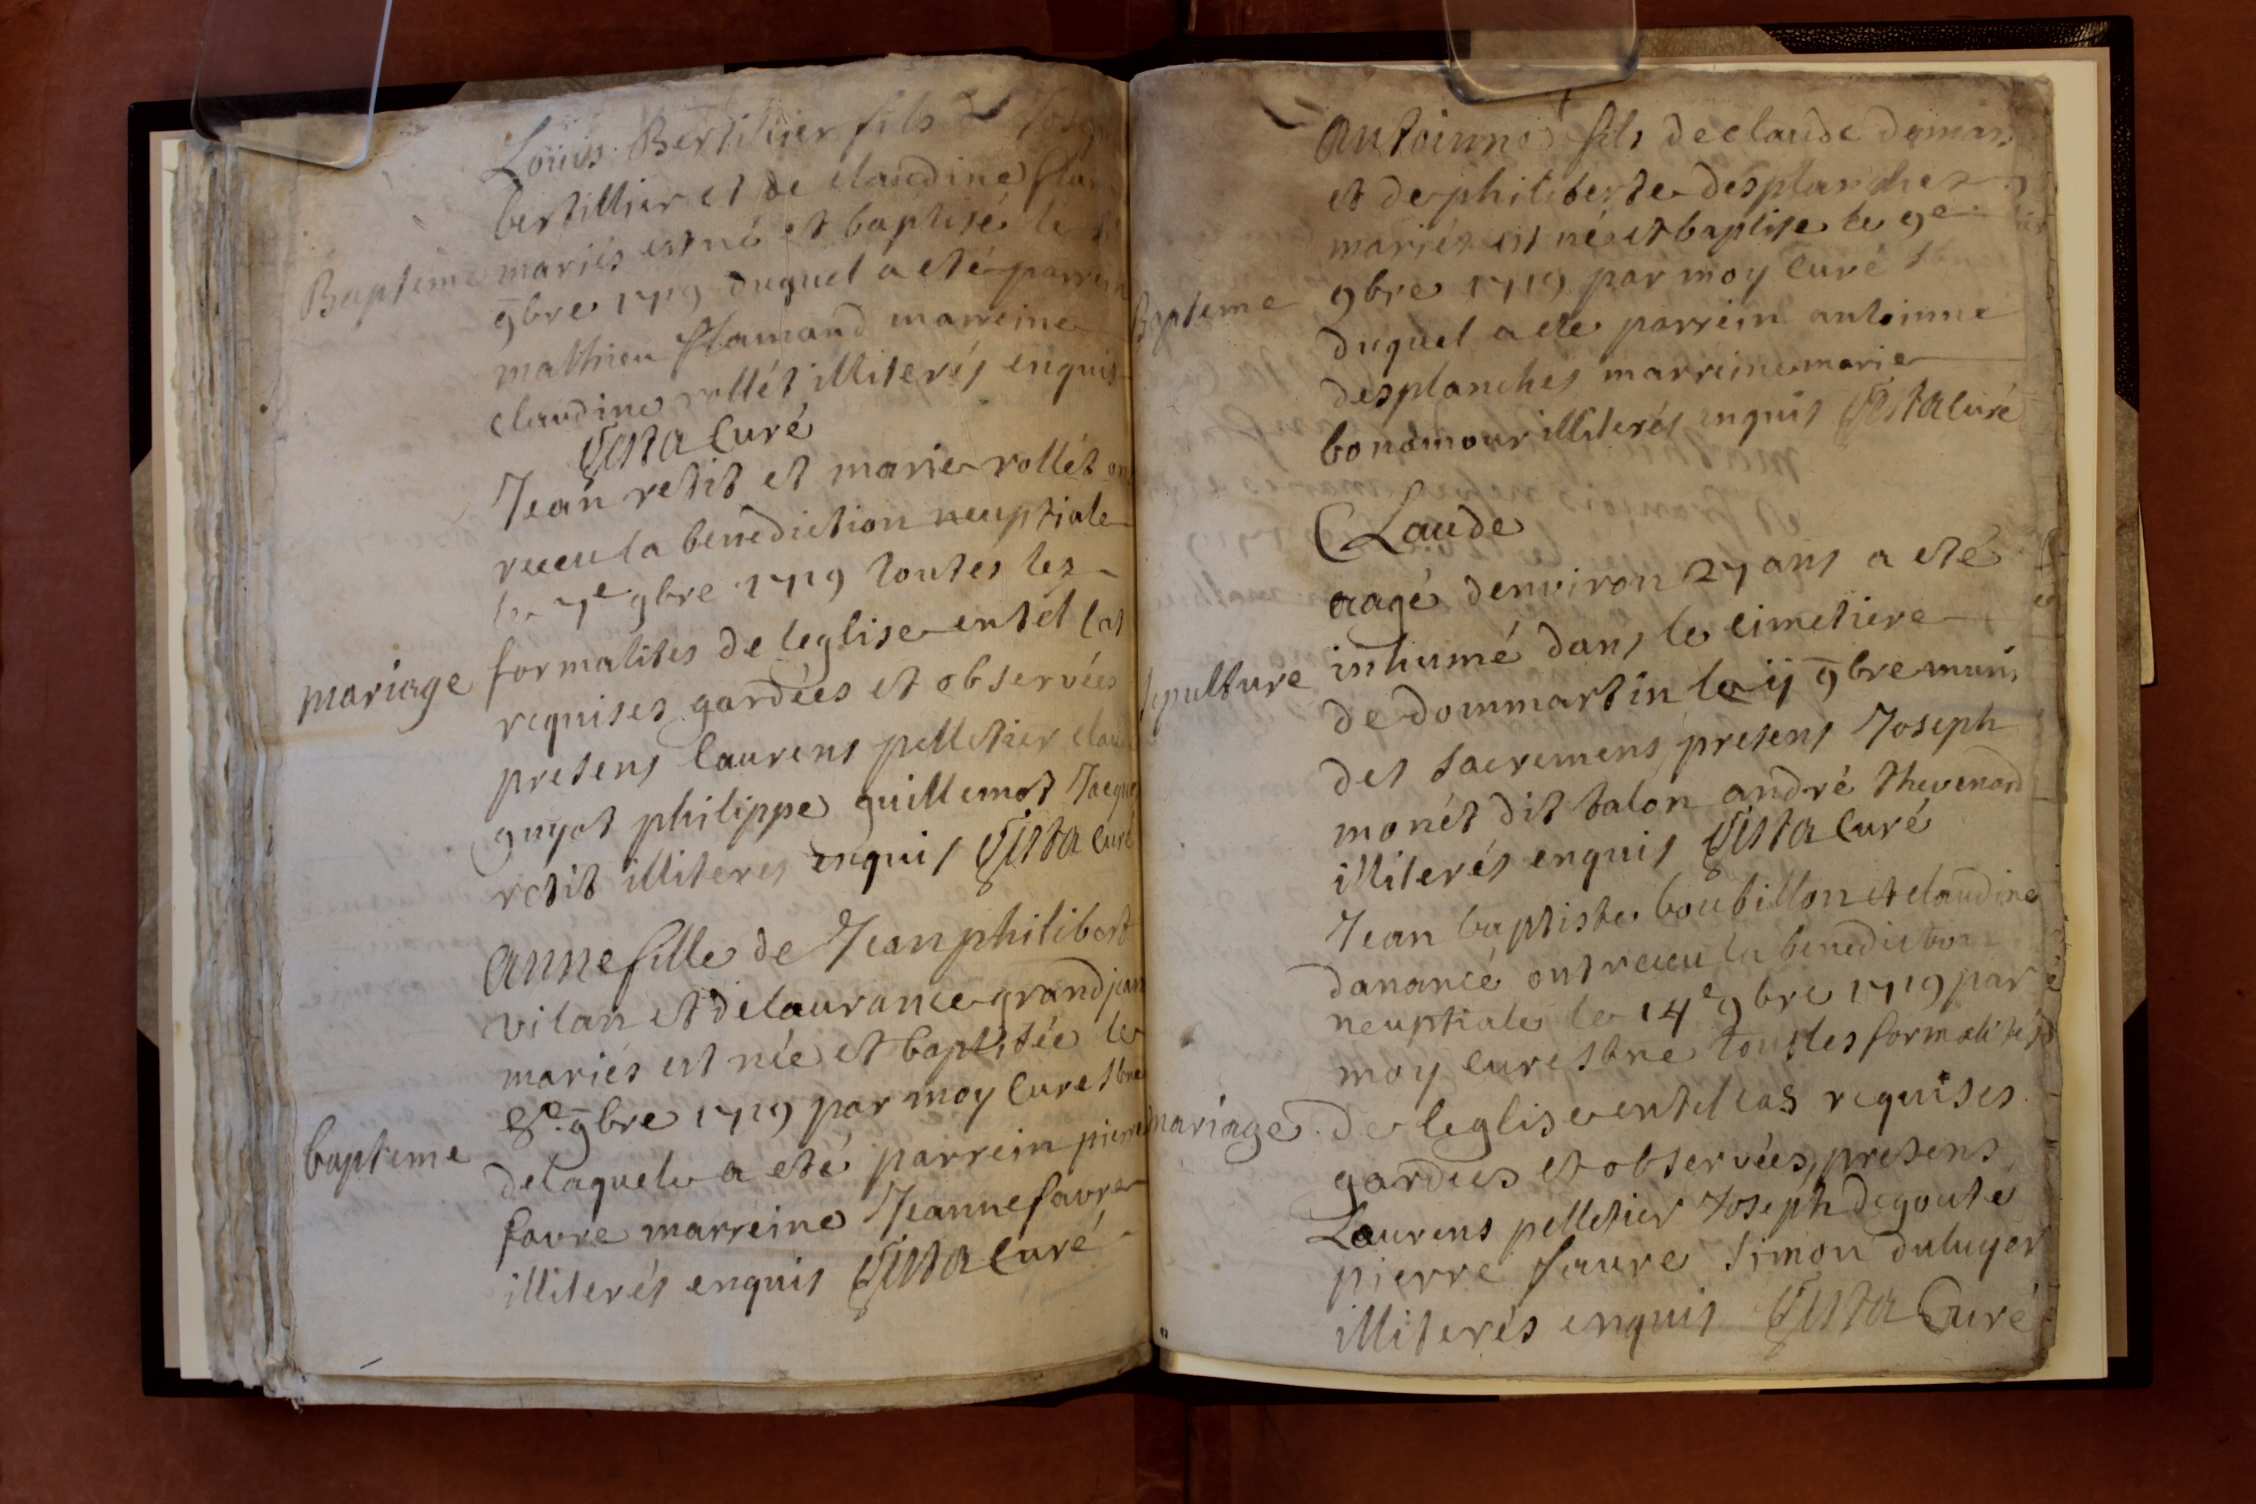 Louis Bertillier fils
bertillier et de claudine
Bapteme mariés est né et baptisé le
9bre 1719 duquel a eté parrein
mathieu flamand marreine
claudine rollét illiterés enquis
Vista Curé
Jean retit et marie rollét ont
receu la benediction neuptiale
le 7e 9bre 1719 toutes les
formalites de leglise en tel Cas
mariage
requises gardées et observées
presens laurens pelletier claude
guyot philippe guillemot Jacques
retit illiteres enquis Vista Curé
Anne fille de Jean philibert
vilan et de laurance grandjean
mariés est née et baptisée le
8e 9bre 1719 par moy Curé sbné
bapteme
delaquele a eté parrein pierre
favre marreine Jeanne favre
illiterés enquis Vista Curé
Antoinne fils de claude
et de philiberte desplanches
mariés est né et baptise le 9e
Bapteme 9bre 1719 par moy Curé
duquel a ete parrein antoinne
desplanches marreine marie
bonamour illiterés enquis Vista Curé
Claude
aagé denviron 27 ans a eté
inhumé dans le cimetiere
sepulture
de dommartin le ij 9bre muni
des sacremens presens Joseph
monét dit talon andré thevenard
illiterés enquis Vista Curé
Jean baptiste boubillon et claudine
danancé ont receu la benediction
neuptiale le 14e 9bre 1719 par
moy cure sbné toutes formalités
mariage de leglise en tel cas requises
gardees et observées, presens
Laurens pelletier Joseph degoute
pierre favre Simon duluyer
illiterés enquis Vista Curé